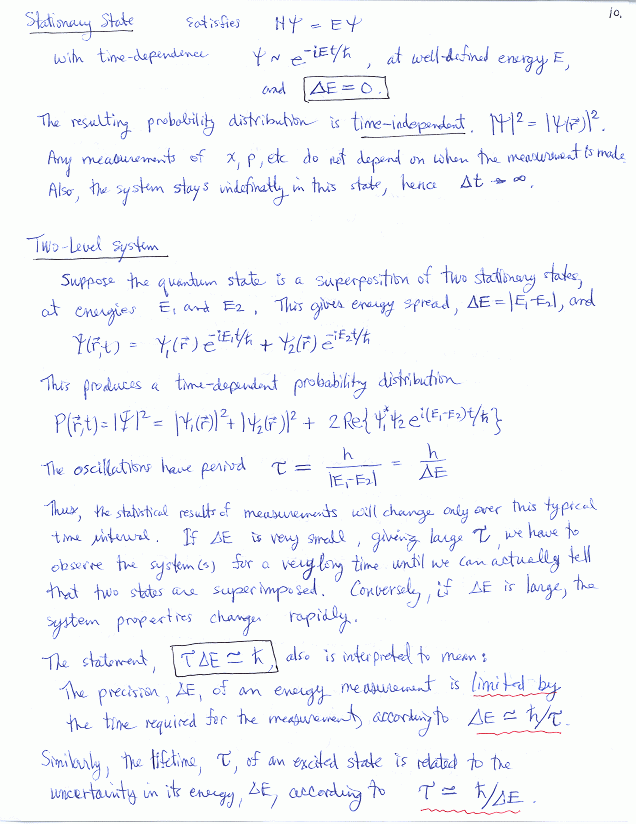 10.
Stationary State satisfies HΨ = EΨ
with time-dependence Ψ ~ e^{-iEt/ħ}, at well-defined energy E,
and ΔE = 0.
The resulting probability distribution is time-independent. |Ψ|² = |Ψ(r⃗)|².
Any measurements of x, p, etc do not depend on when the measurement is made
Also, the system stays indefinatly in this state, hence Δt → ∞.
Two-Level system
Suppose the quantum state is a superposition of two stationary states,
at energies E₁ and E₂. This gives energy spread, ΔE = |E₁-E₂|, and
Ψ(r⃗,t) = Ψ₁(r⃗) e^{-iE₁t/ħ} + Ψ₂(r⃗) e^{-iE₂t/ħ}
This produces a time-dependent probability distribution
P(r⃗,t) = |Ψ|² = |Ψ₁(r⃗)|² + |Ψ₂(r⃗)|² + 2 Re{ Ψ₁* Ψ₂ e^{i(E₁-E₂)t/ħ} }
The oscillations have period τ = h/|E₁-E₂| = h/ΔE
Thus, the statistical results of measurements will change only over this typical
time interval. If ΔE is very small, giving large τ, we have to
observe the system(s) for a very long time until we can actually tell
that two states are superimposed. Conversely, if ΔE is large, the
system properties change rapidly.
The statement, τΔE ≃ ħ, also is interpreted to mean:
The precision, ΔE, of an energy measurement is limited by
the time required for the measurement, according to ΔE ≃ ħ/τ.
Similarly, the lifetime, τ, of an excited state is related to the
uncertainty in its energy, ΔE, according to τ ≃ ħ/ΔE.